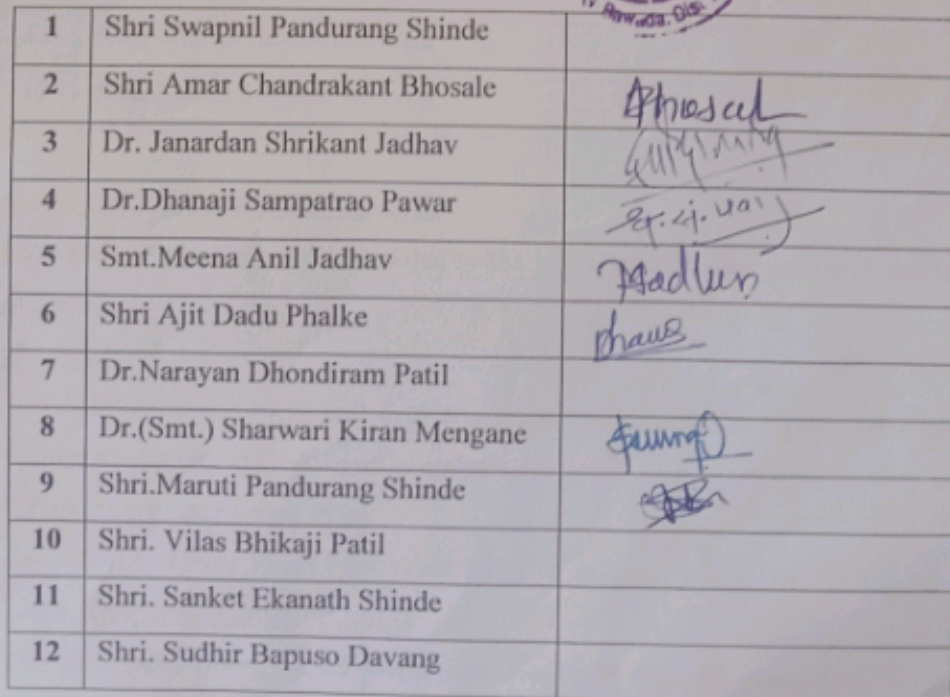 Bawada. Dist
1 Shri Swapnil Pandurang Shinde
2 Shri Amar Chandrakant Bhosale
3 Dr. Janardan Shrikant Jadhav
4 Dr.Dhanaji Sampatrao Pawar
5 Smt.Meena Anil Jadhav
6 Shri Ajit Dadu Phalke
7 Dr.Narayan Dhondiram Patil
8 Dr.(Smt.) Sharwari Kiran Mengane
9 Shri.Maruti Pandurang Shinde
10 Shri. Vilas Bhikaji Patil
11 Shri. Sanket Ekanath Shinde
12 Shri. Sudhir Bapuso Davang